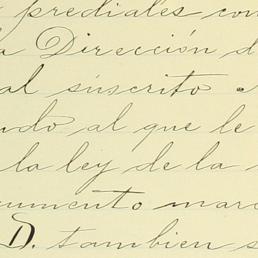 prediales con
a Dirección d
al súscrito
ndo al que le
la ley de la
cumento marc
D. tambien s